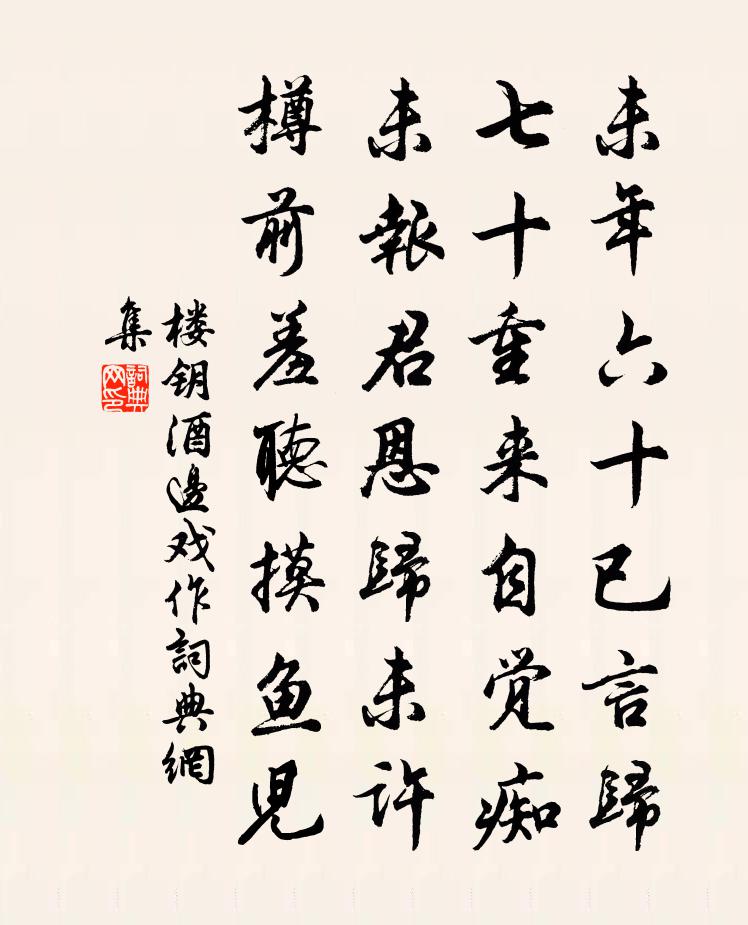 未年六十已言歸
七十重来自觉痴
未報君恩歸未許
樽前羞聽摸鱼児
楼钥酒邊戏作詞典網
集
詞典網印